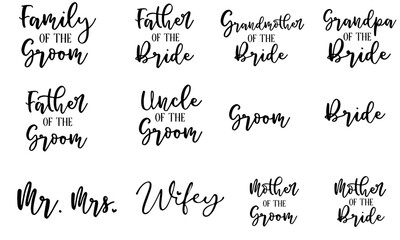 Family
OF THE
Groom
Father
OF THE
Bride
Grandmother
OF THE
Bride
Grandpa
OF THE
Bride
Father
OF THE
Groom
Uncle
OF THE
Groom
Groom
Bride
Mr. Mrs.
Wifey
Mother
OF THE
Groom
Mother
OF THE
Bride